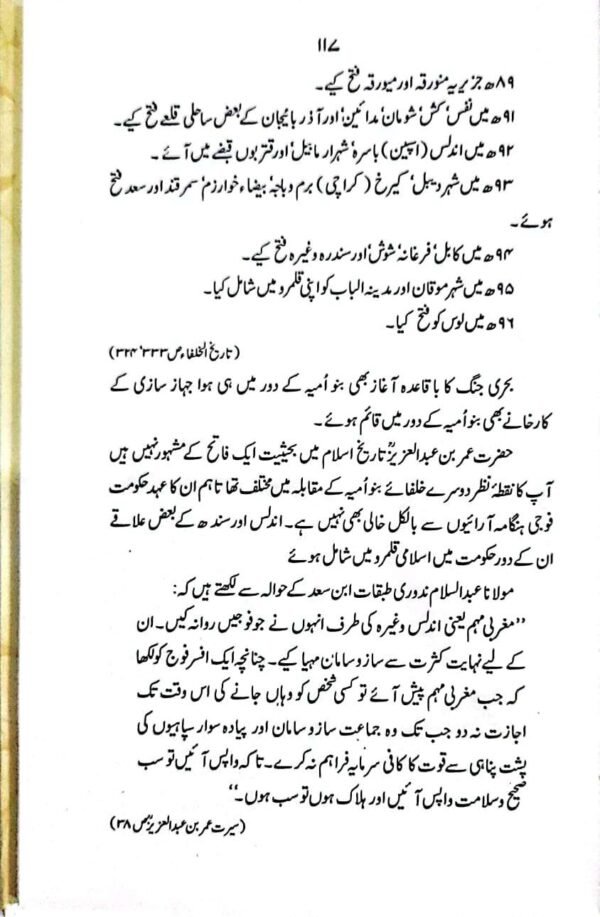 ۱۱۷
۸۹ھ جزیریہ منورقہ اور میورقہ فتح کیے۔
۹۱ھ میں نفس' کش' شومان' مدائین' اور آذر بائیجان کے بعض ساحلی قلعے فتح کیے۔
۹۲ھ میں اندلس (اسپین) باسرہ' شہرار مابیل' اور قتربوں قبضے میں آئے۔
۹۳ھ میں شہر دیبل' کیرخ (کراچی) برم و باجہ' بیضاء خوارزم' سمرقند اور سعد فتح
ہوئے۔
۹۴ھ میں کابل' فرغانہ' شوش' اور سندرہ وغیرہ فتح کیے۔
۹۵ھ میں شہر موقان اور مدینہ الباب کو اپنی قلمرو میں شامل کیا۔
۹۶ھ میں لوس کو فتح کیا۔
(تاریخ الخلفاء ص ۳۳۳' ۳۲۴)
بحری جنگ کا باقاعدہ آغاز بھی بنو اُمیہ کے دور میں ہی ہوا جہاز سازی کے
کارخانے بھی بنو اُمیہ کے دور میں قائم ہوئے۔
حضرت عمر بن عبدالعزیزؒ تاریخ اسلام میں بحیثیت ایک فاتح کے مشہور نہیں ہیں
آپ کا نقطۂ نظر دوسرے خلفائے بنو اُمیہ کے مقابلہ میں مختلف تھا تاہم ان کا عہد حکومت
فوجی ہنگامہ آرائیوں سے بالکل خالی بھی نہیں ہے۔ اندلس اور سندھ کے بعض علاقے
ان کے دور حکومت میں اسلامی قلمرو میں شامل ہوئے
مولانا عبدالسلام ندوری طبقات ابن سعد کے حوالہ سے لکھتے ہیں کہ:
"مغربی مہم یعنی اندلس وغیرہ کی طرف انہوں نے جو فوجیں روانہ کیں۔ ان
کے لیے نہایت کثرت سے ساز و سامان مہیا کیے۔ چنانچہ ایک افسر فوج کو لکھا
کہ جب مغربی مہم پیش آئے تو کسی شخص کو وہاں جانے کی اس وقت تک
اجازت نہ دو جب تک وہ جماعت ساز و سامان اور پیادہ سوار سپاہیوں کی
پشت پناہی سے قوت کا کافی سرمایہ فراہم نہ کرے۔ تاکہ واپس آئیں تو سب
صحیح و سلامت واپس آئیں اور ہلاک ہوں تو سب ہوں۔"
(سیرت عمر بن عبدالعزیزؒ ص ۳۸)